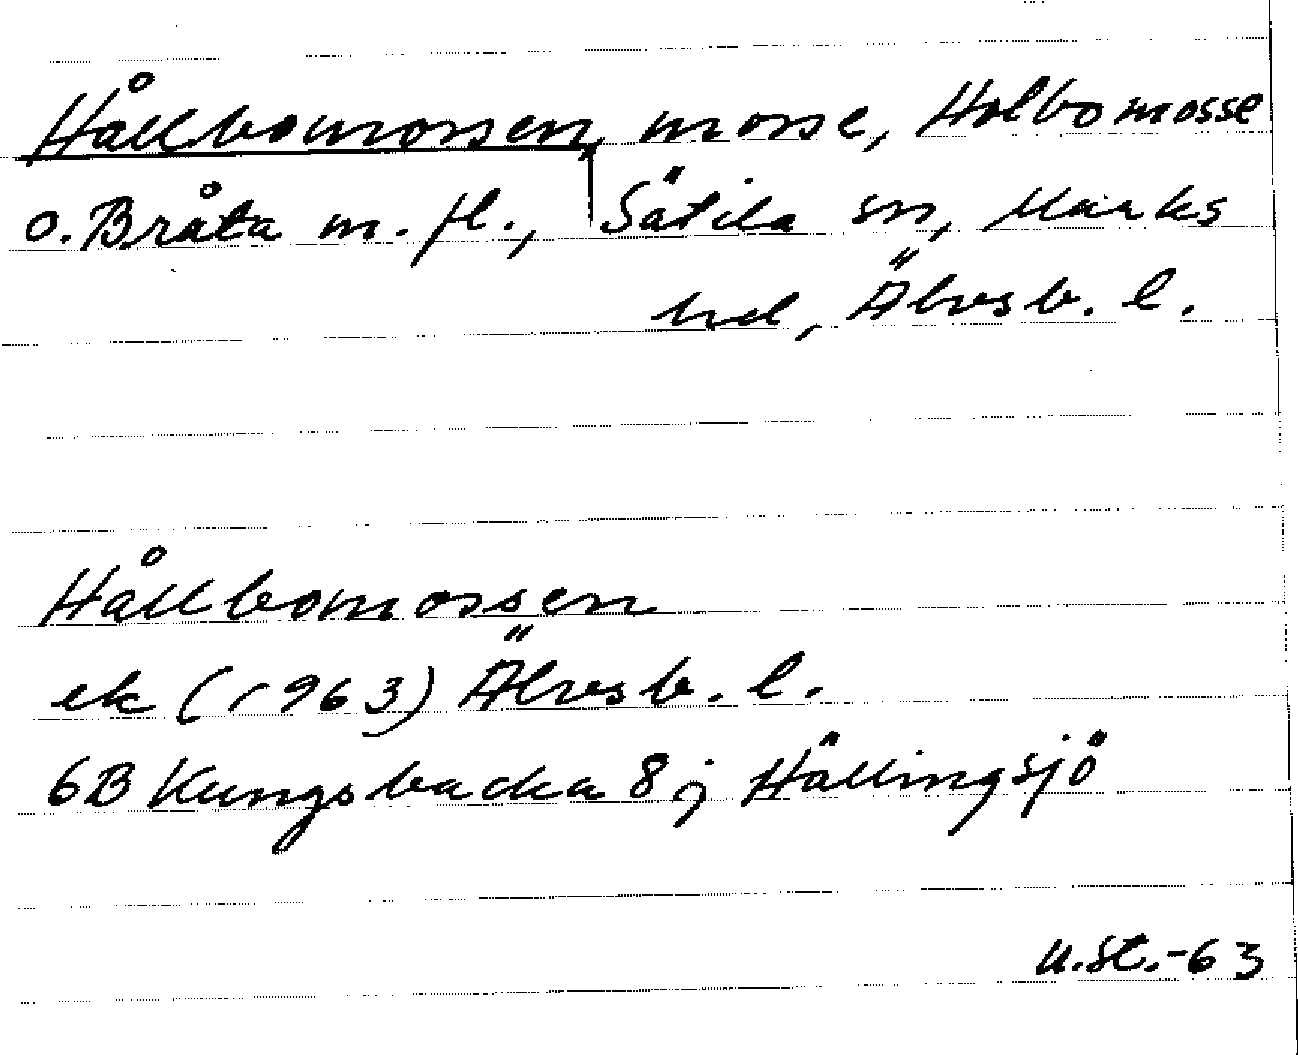 Hållbomossen, mosse, Holbomosse
o. Bråta m. fl., Sätila sn, Marks
hd, Älvsb. l.
Hållbomossen
ek (1963) Älvsb. l.
6B Kungsbacka 8 j Hällingsjö
U.St.-63